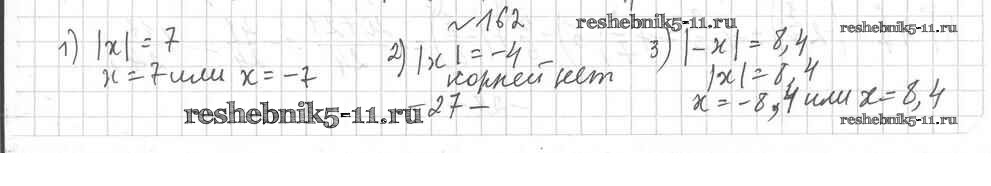 №162
reshebnik5-11.ru
reshebnik5-11.ru
1) |x| = 7
x = 7 или x = -7
2) |x| = -4
корней нет
3) |-x| = 8,4
|x| = 8,4
x = -8,4 или x = 8,4
reshebnik5-11.ru
-27-
reshebnik5-11.ru